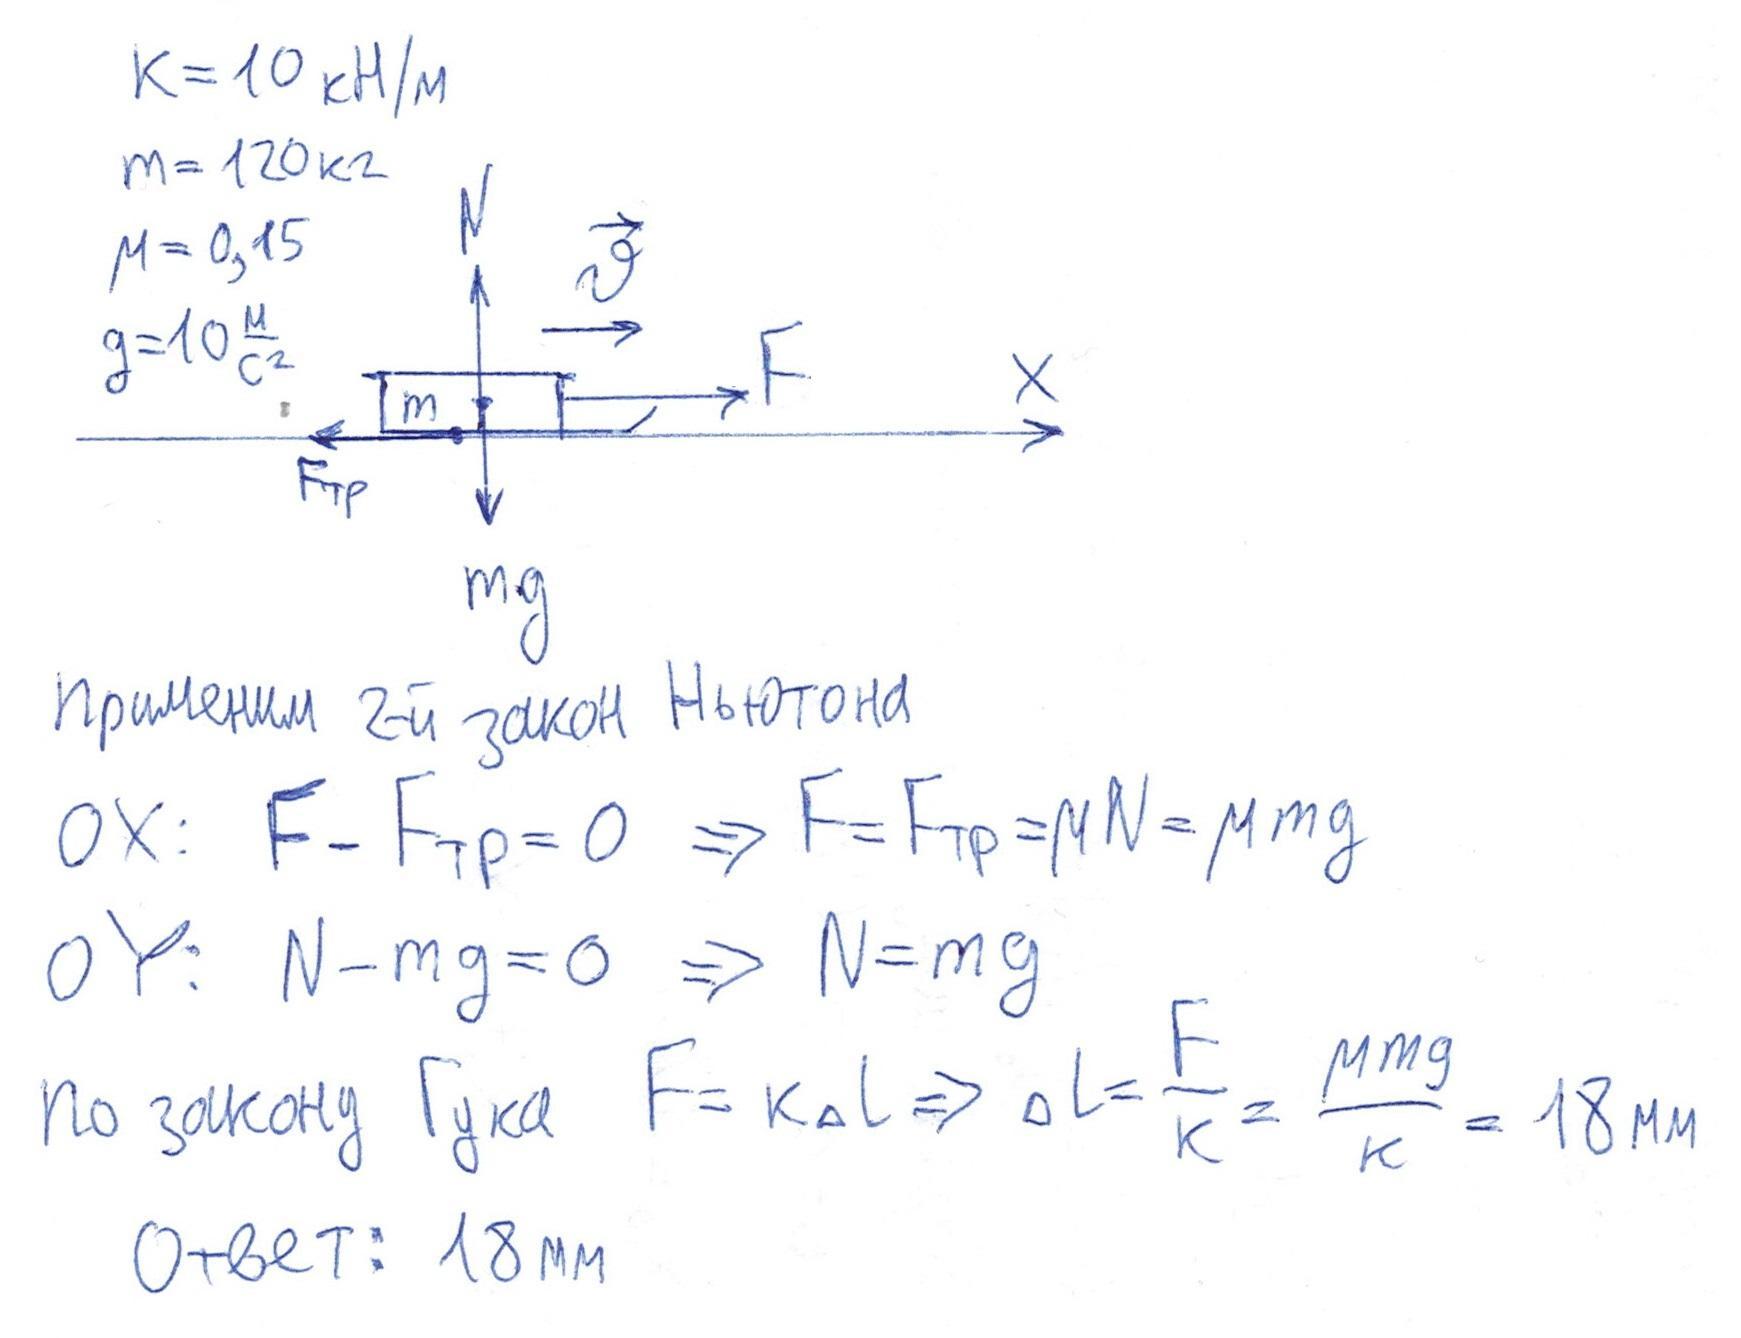 K = 10 кН/м
m = 120 кг
μ = 0,15
g = 10 м/с²
N
v⃗
F
X
m
Fтр
mg
Применим 2-й закон Ньютона
OX: F - Fтр = 0 ⇒ F = Fтр = μN = μmg
OY: N - mg = 0 ⇒ N = mg
По закону Гука F = кΔl ⇒ Δl = F/к = μmg/к = 18 мм
Ответ: 18 мм